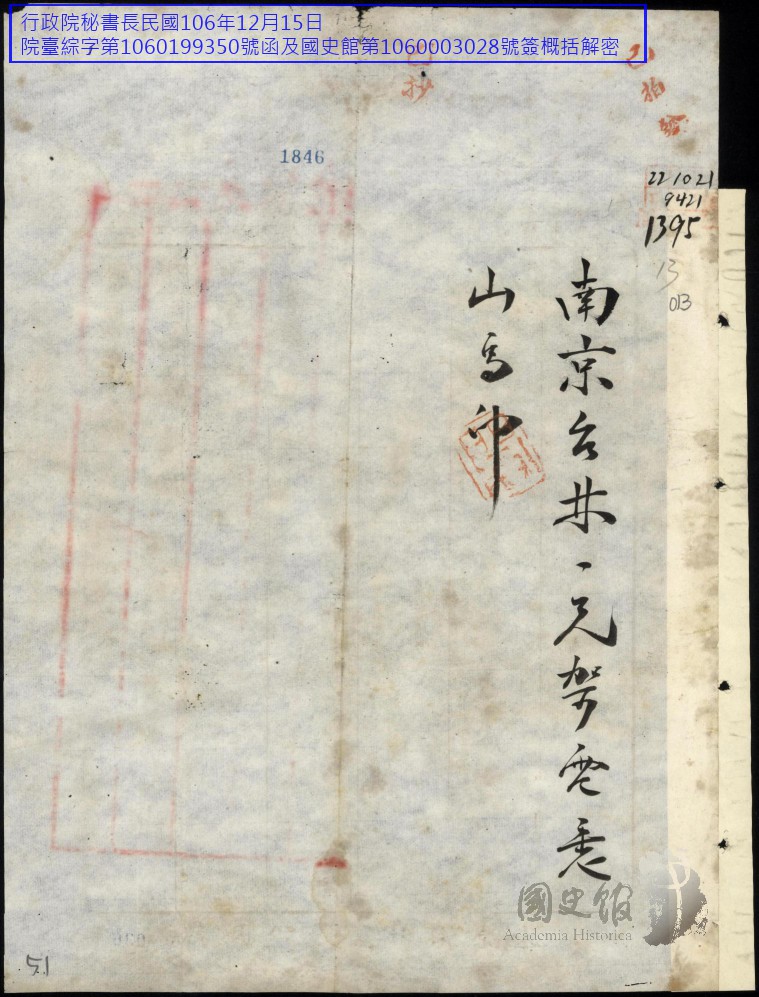 行政院秘書長民國106年12月15日
院臺綜字第1060199350號函及國史館第1060003028號簽概括解密
已抄
已拍發
1846
22 10 21
9421
1395
13
013
南京台井、兄架電悉
山马卯
51
國史館
Academia Historica